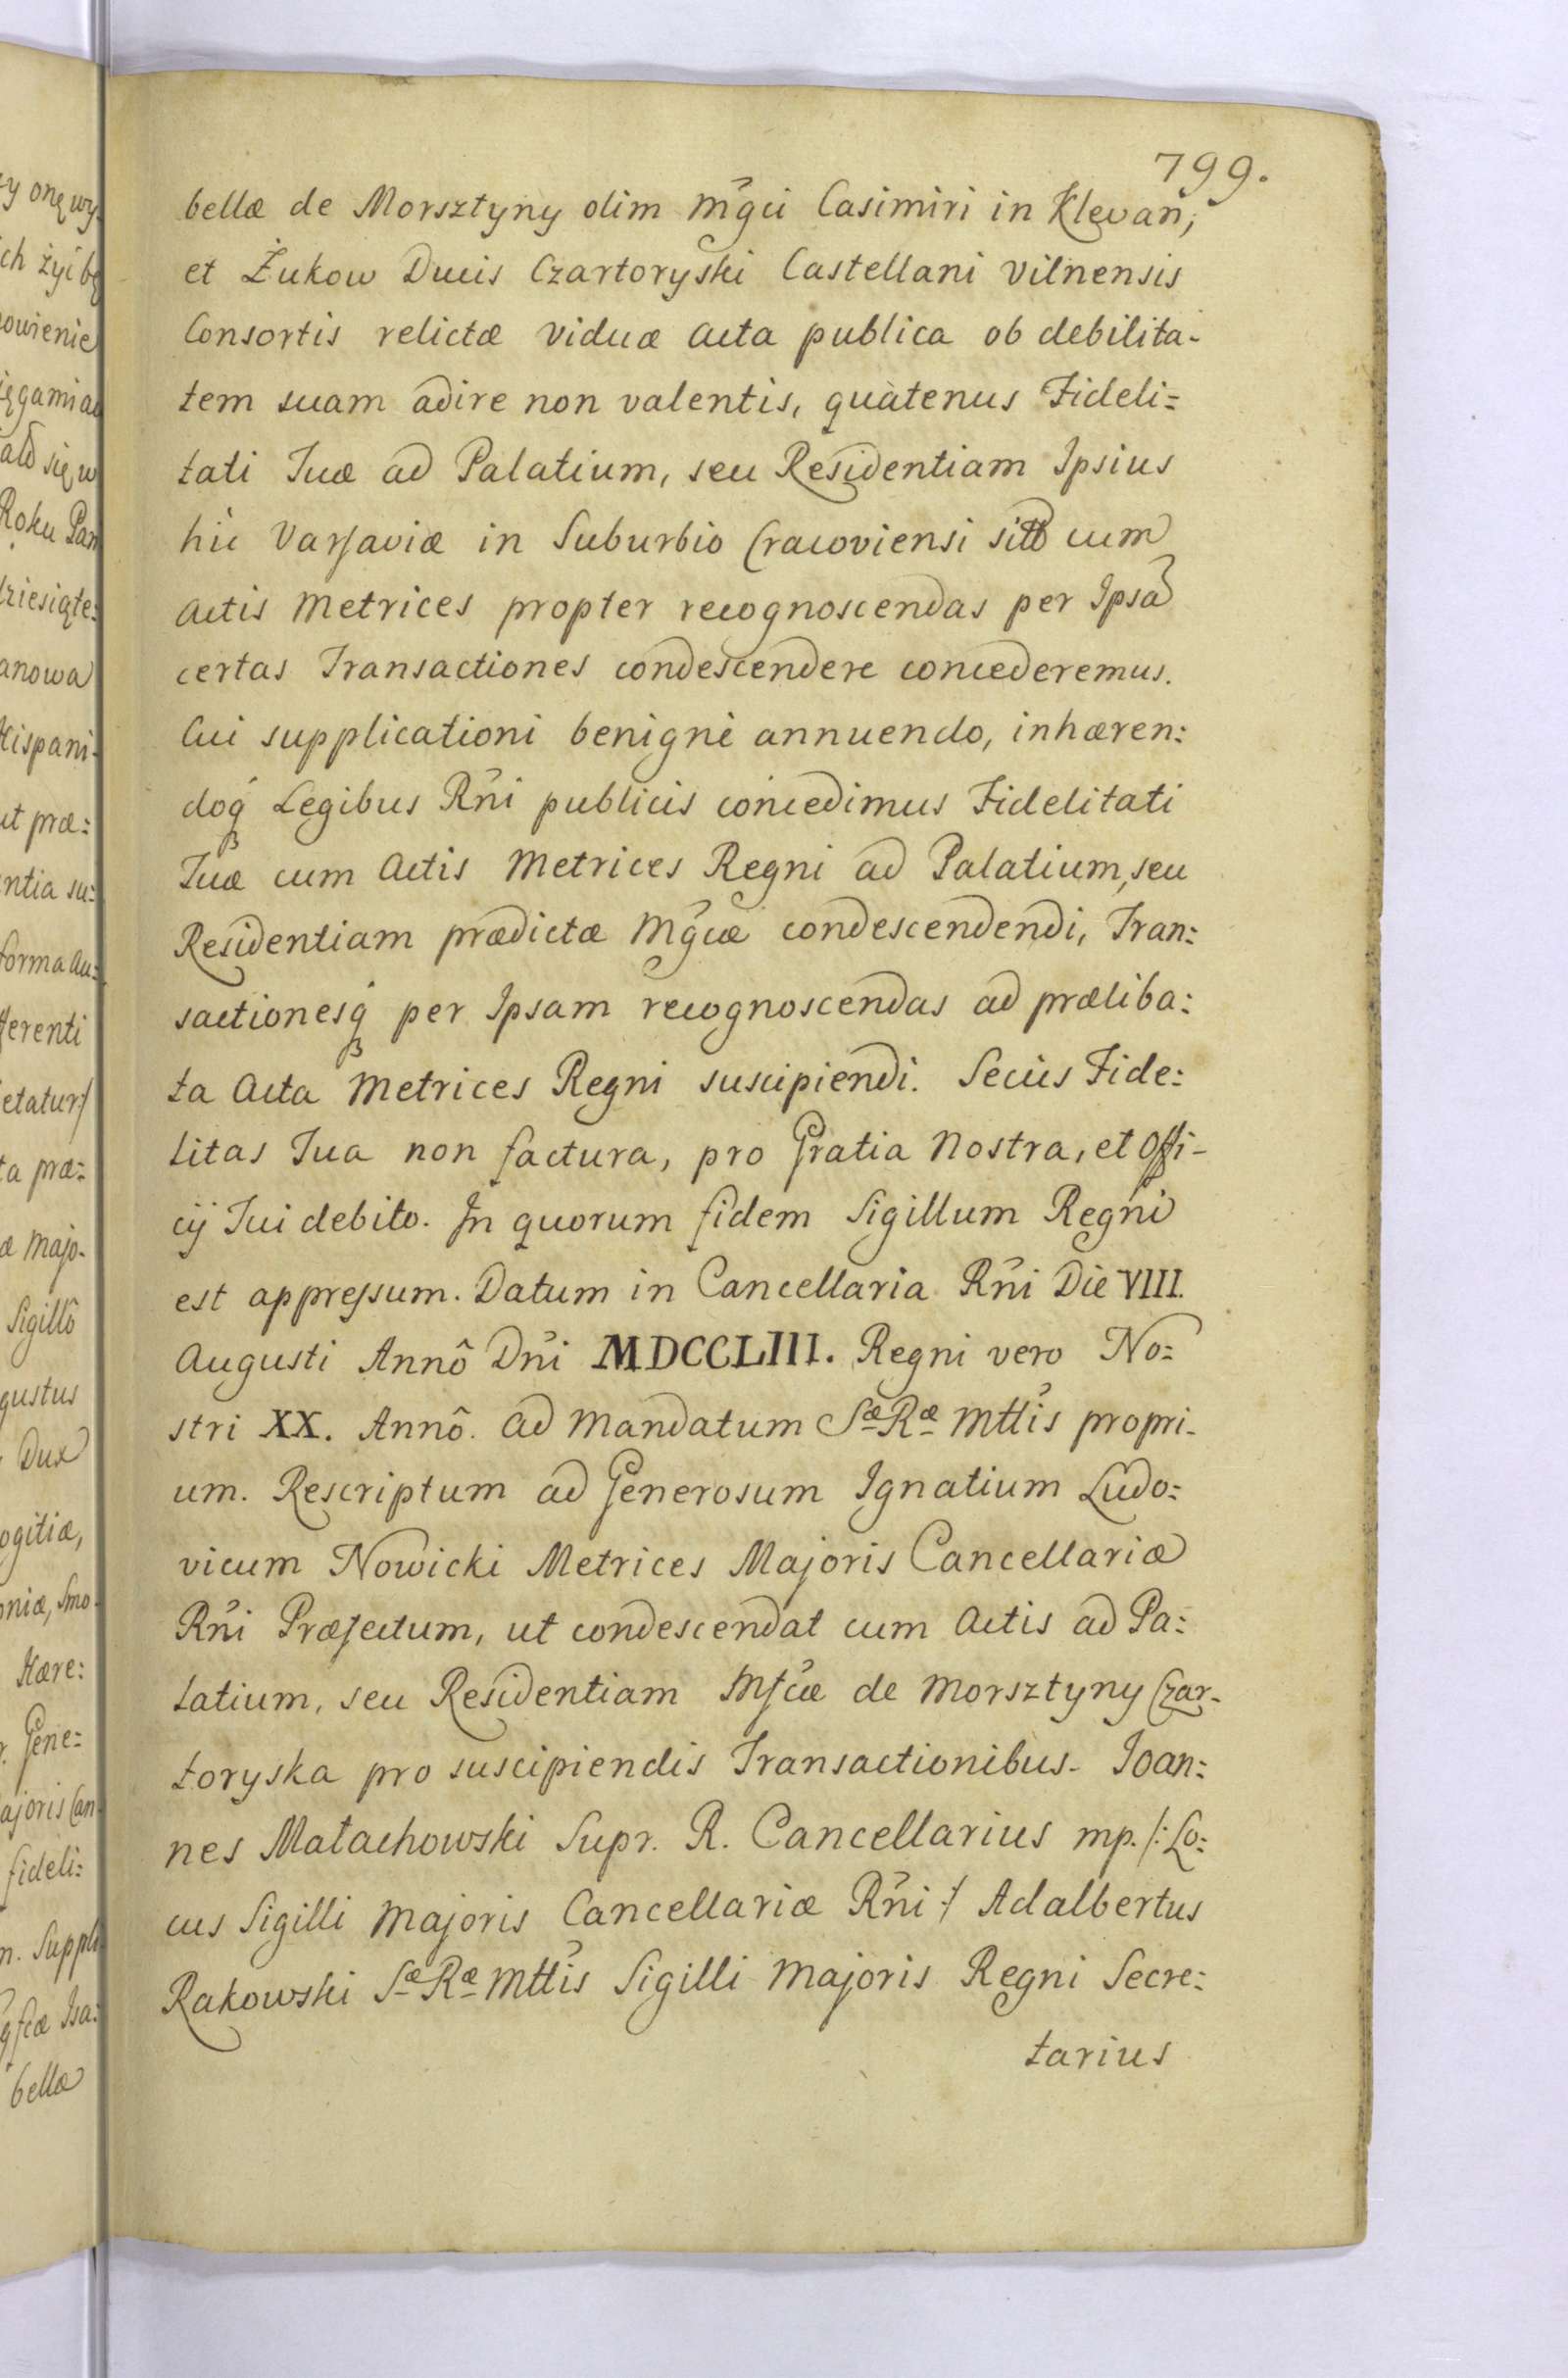 799.
bellæ de Morsztyny olim Mg̃ci Casimiri in Klevan,
et Żukow Ducis Czartoryski Castellani Vilnensis
Consortis relictæ Viduæ Acta publica ob debilita-
tem suam adire non valentis, quàtenus Fideli=
tati Tuæ ad Palatium, seu Residentiam Ipsius
hìc Varsaviæ in Suburbio Cracoviensi sitã cum
Actis Metrices propter recognoscendas per Ipsã
certas Transactiones condescendere concederemus.
Cui supplicationi benignè annuendo, inhæren:
doq́ Legibus Rñi publicis concedimus Fidelitati
Tuæ cum Actis Metrices Regni ad Palatium, seu
Residentiam prædictæ Mg̃cæ condescendendi, Tran:
sactionesq́ per Ipsam recognoscendas ad præliba:
ta Acta Metrices Regni suscipiendi. Secùs Fide:
litas Tua non factura, pro Gratia Nostra, et Offi-
cij Tui debito. In quorum fidem Sigillum Regni
est appressum. Datum in Cancellaria Rñi Die VIII.
Augusti Annô Dñi MDCCLIII. Regni vero No=
stri XX. Annô. Ad Mandatum Sæ Ræ Mttis propri-
um. Rescriptum ad Generosum Ignatium Ludo:
vicum Nowicki Metrices Majoris Cancellariæ
Rñi Præfectum, ut condescendat cum Actis ad Pa:
latium, seu Residentiam Mfcæ de Morsztyny Czar-
toryska pro suscipiendis Transactionibus. Joan:
nes Małachowski Supr. R. Cancellarius mp. /: Lo:
cus Sigilli Majoris Cancellariæ Rñi :/ Adalbertus
Rakowski Sæ Ræ Mttis Sigilli Majoris Regni Secre:
tarius